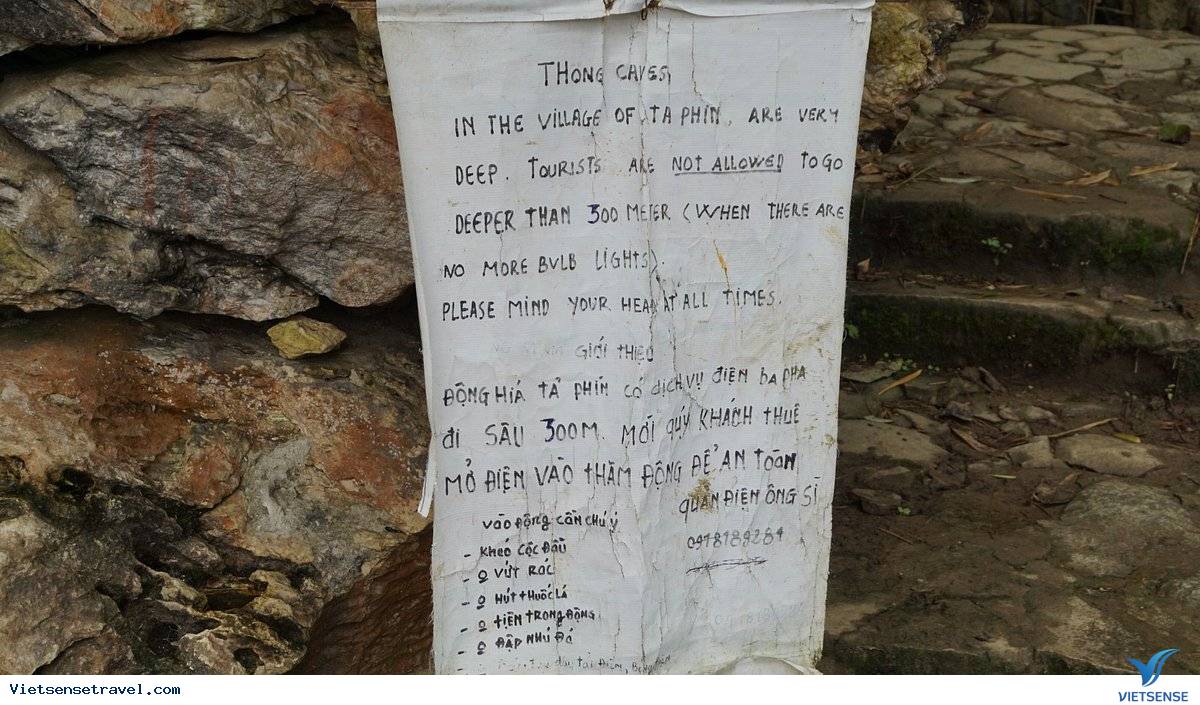 THONG CAVES,
IN THE VILLAGE OF TA PHIN, ARE VERY
DEEP. TOURISTS ARE NOT ALLOWED TO GO
DEEPER THAN 300 METER (WHEN THERE ARE
NO MORE BULB LIGHTS).
PLEASE MIND YOUR HEAD AT ALL TIMES.
GIỚI THIỆU
ĐỘNG HIÁ TẢ PHÌN CÓ DỊCH VỤ ĐIỆN BA PHA
đi SÂU 300M. MỜI QÚY KHÁCH THUÊ
MỞ ĐIỆN VÀO THĂM ĐỘNG ĐỂ AN TOÀN
QUÁN ĐIỆN ÔNG SĨ
VÀO ĐỘNG CẦN CHÚ Ý
- KHÉO CỘC ĐẦU
- O VỨT RÁC
- O HÚT THUỐC LÁ
- O TIỆN TRONG ĐỘNG
- O ĐẬP NHŨ ĐÁ
Vietsensetravel.com
VIETSENSE